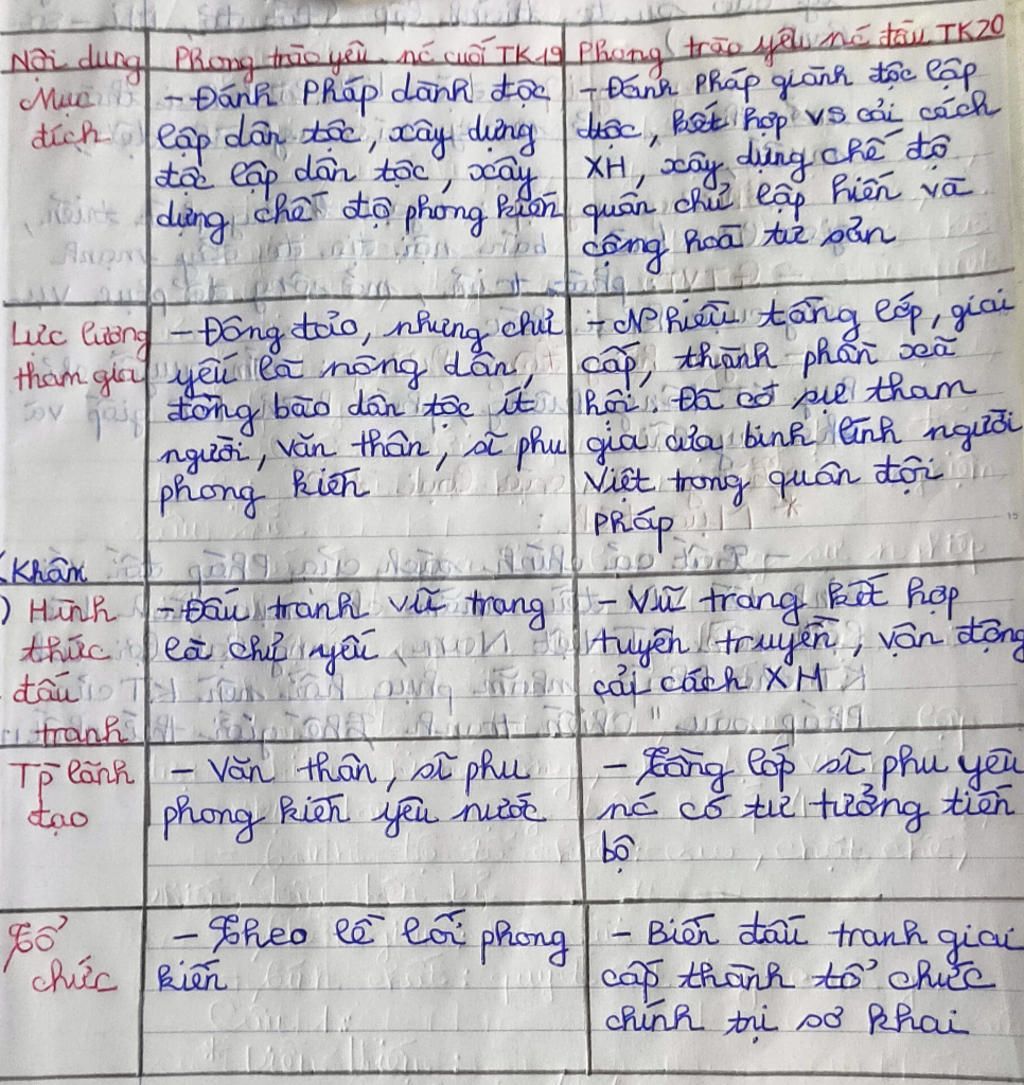 Nội dung
Phong trào yêu nc cuối TK19
Phong trào yêu nc đầu TK20
Mục
đích
- Đánh Pháp dành độc
lập dân tộc, xây dựng
độc lập dân tộc, xây
dựng chế độ phong kiến
- Đánh Pháp giành độc lập
dtộc, kết hợp vs cải cách
XH, xây dựng chế độ
quân chủ lập hiến và
cộng hoà tư sản
Lực lượng
tham gia
- Đông đảo, nhưng chủ
yếu là nông dân,
đồng bào dân tộc ít
người, văn thân, sĩ phu
phong kiến
- Nhiều tầng lớp, giai
cấp, thành phần xã
hội. Đã có sự tham
gia của binh lính người
Việt trong quân đội
Pháp
Khăm
Hình
thức
đấu
tranh
- Đấu tranh vũ trang
là chủ yếu
- Vũ trang kết hợp
tuyên truyền, vận động
cải cách XH
Tp lãnh
đạo
- Văn thân, sĩ phu
phong kiến yêu nước
- Tầng lớp sĩ phu yêu
nc có tư tưởng tiến
bộ
Tổ
chức
- Theo lề lối phong
kiến
- Biến đấu tranh giai
cấp thành tổ chức
chính trị sơ khai